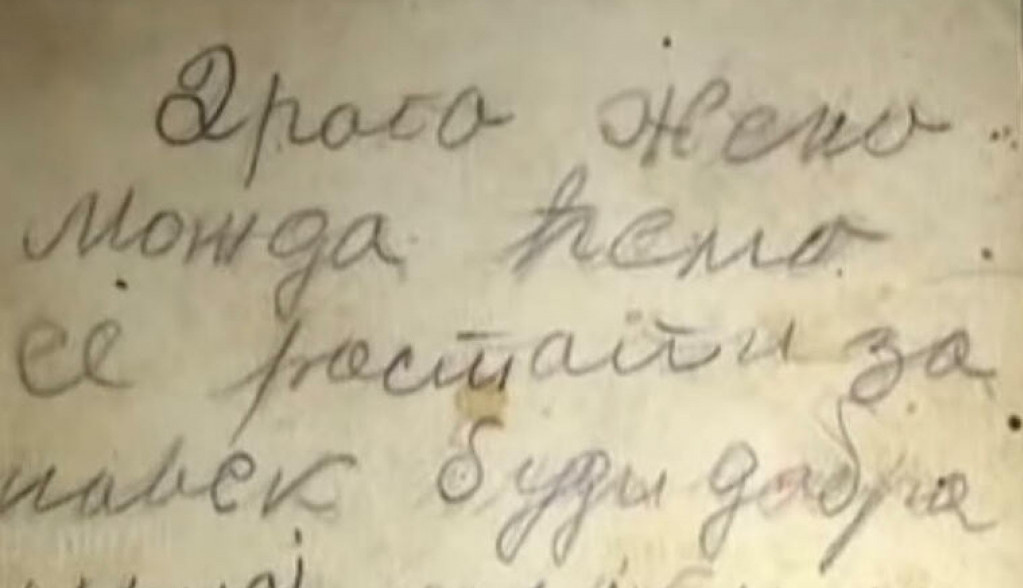 Драга Жено
можда ћемо
се растати за
навек буди добра